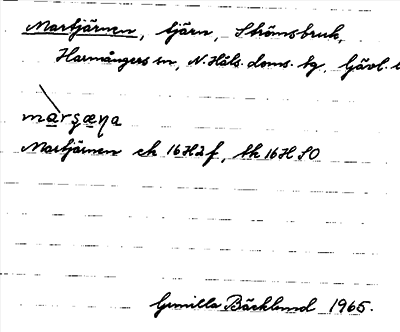 Martjärnen, tjärn, Strömsbruk,
Harmångers sn, N. Häls. doms. hg, Gävl.
Martjärnen ek 16H2f, tk 16H SO
Gunilla Bäcklund 1965.